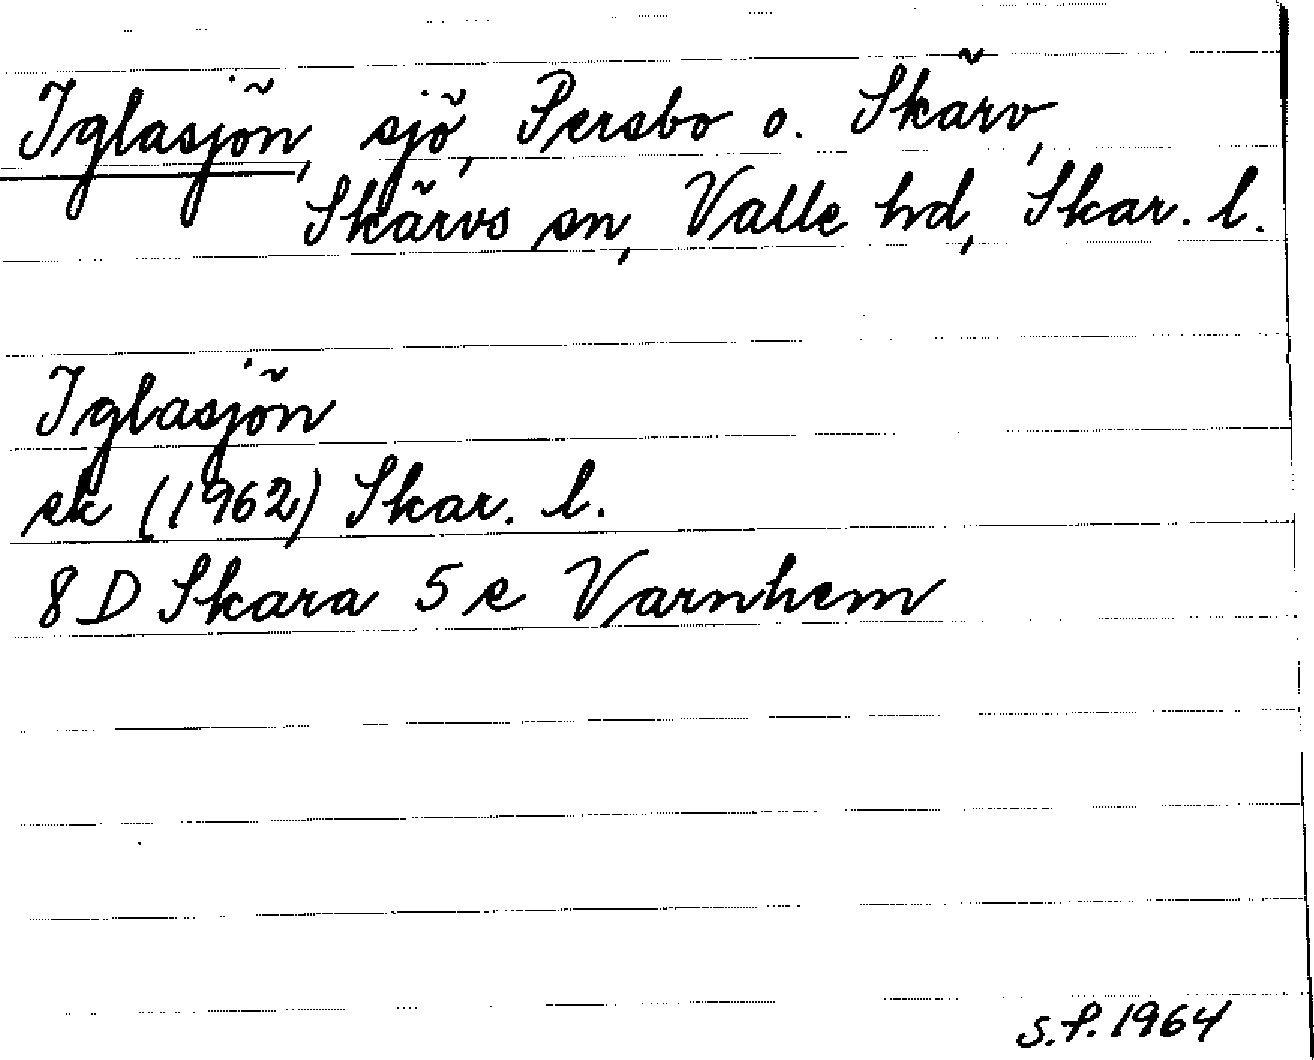 Iglasjön, sjö, Persbo o. Skärv,
Skärvs sn, Valle hd, Skar. l.
Iglasjön
ek (1962) Skar. l.
8 D Skara 5 e Varnhem
S.P. 1964